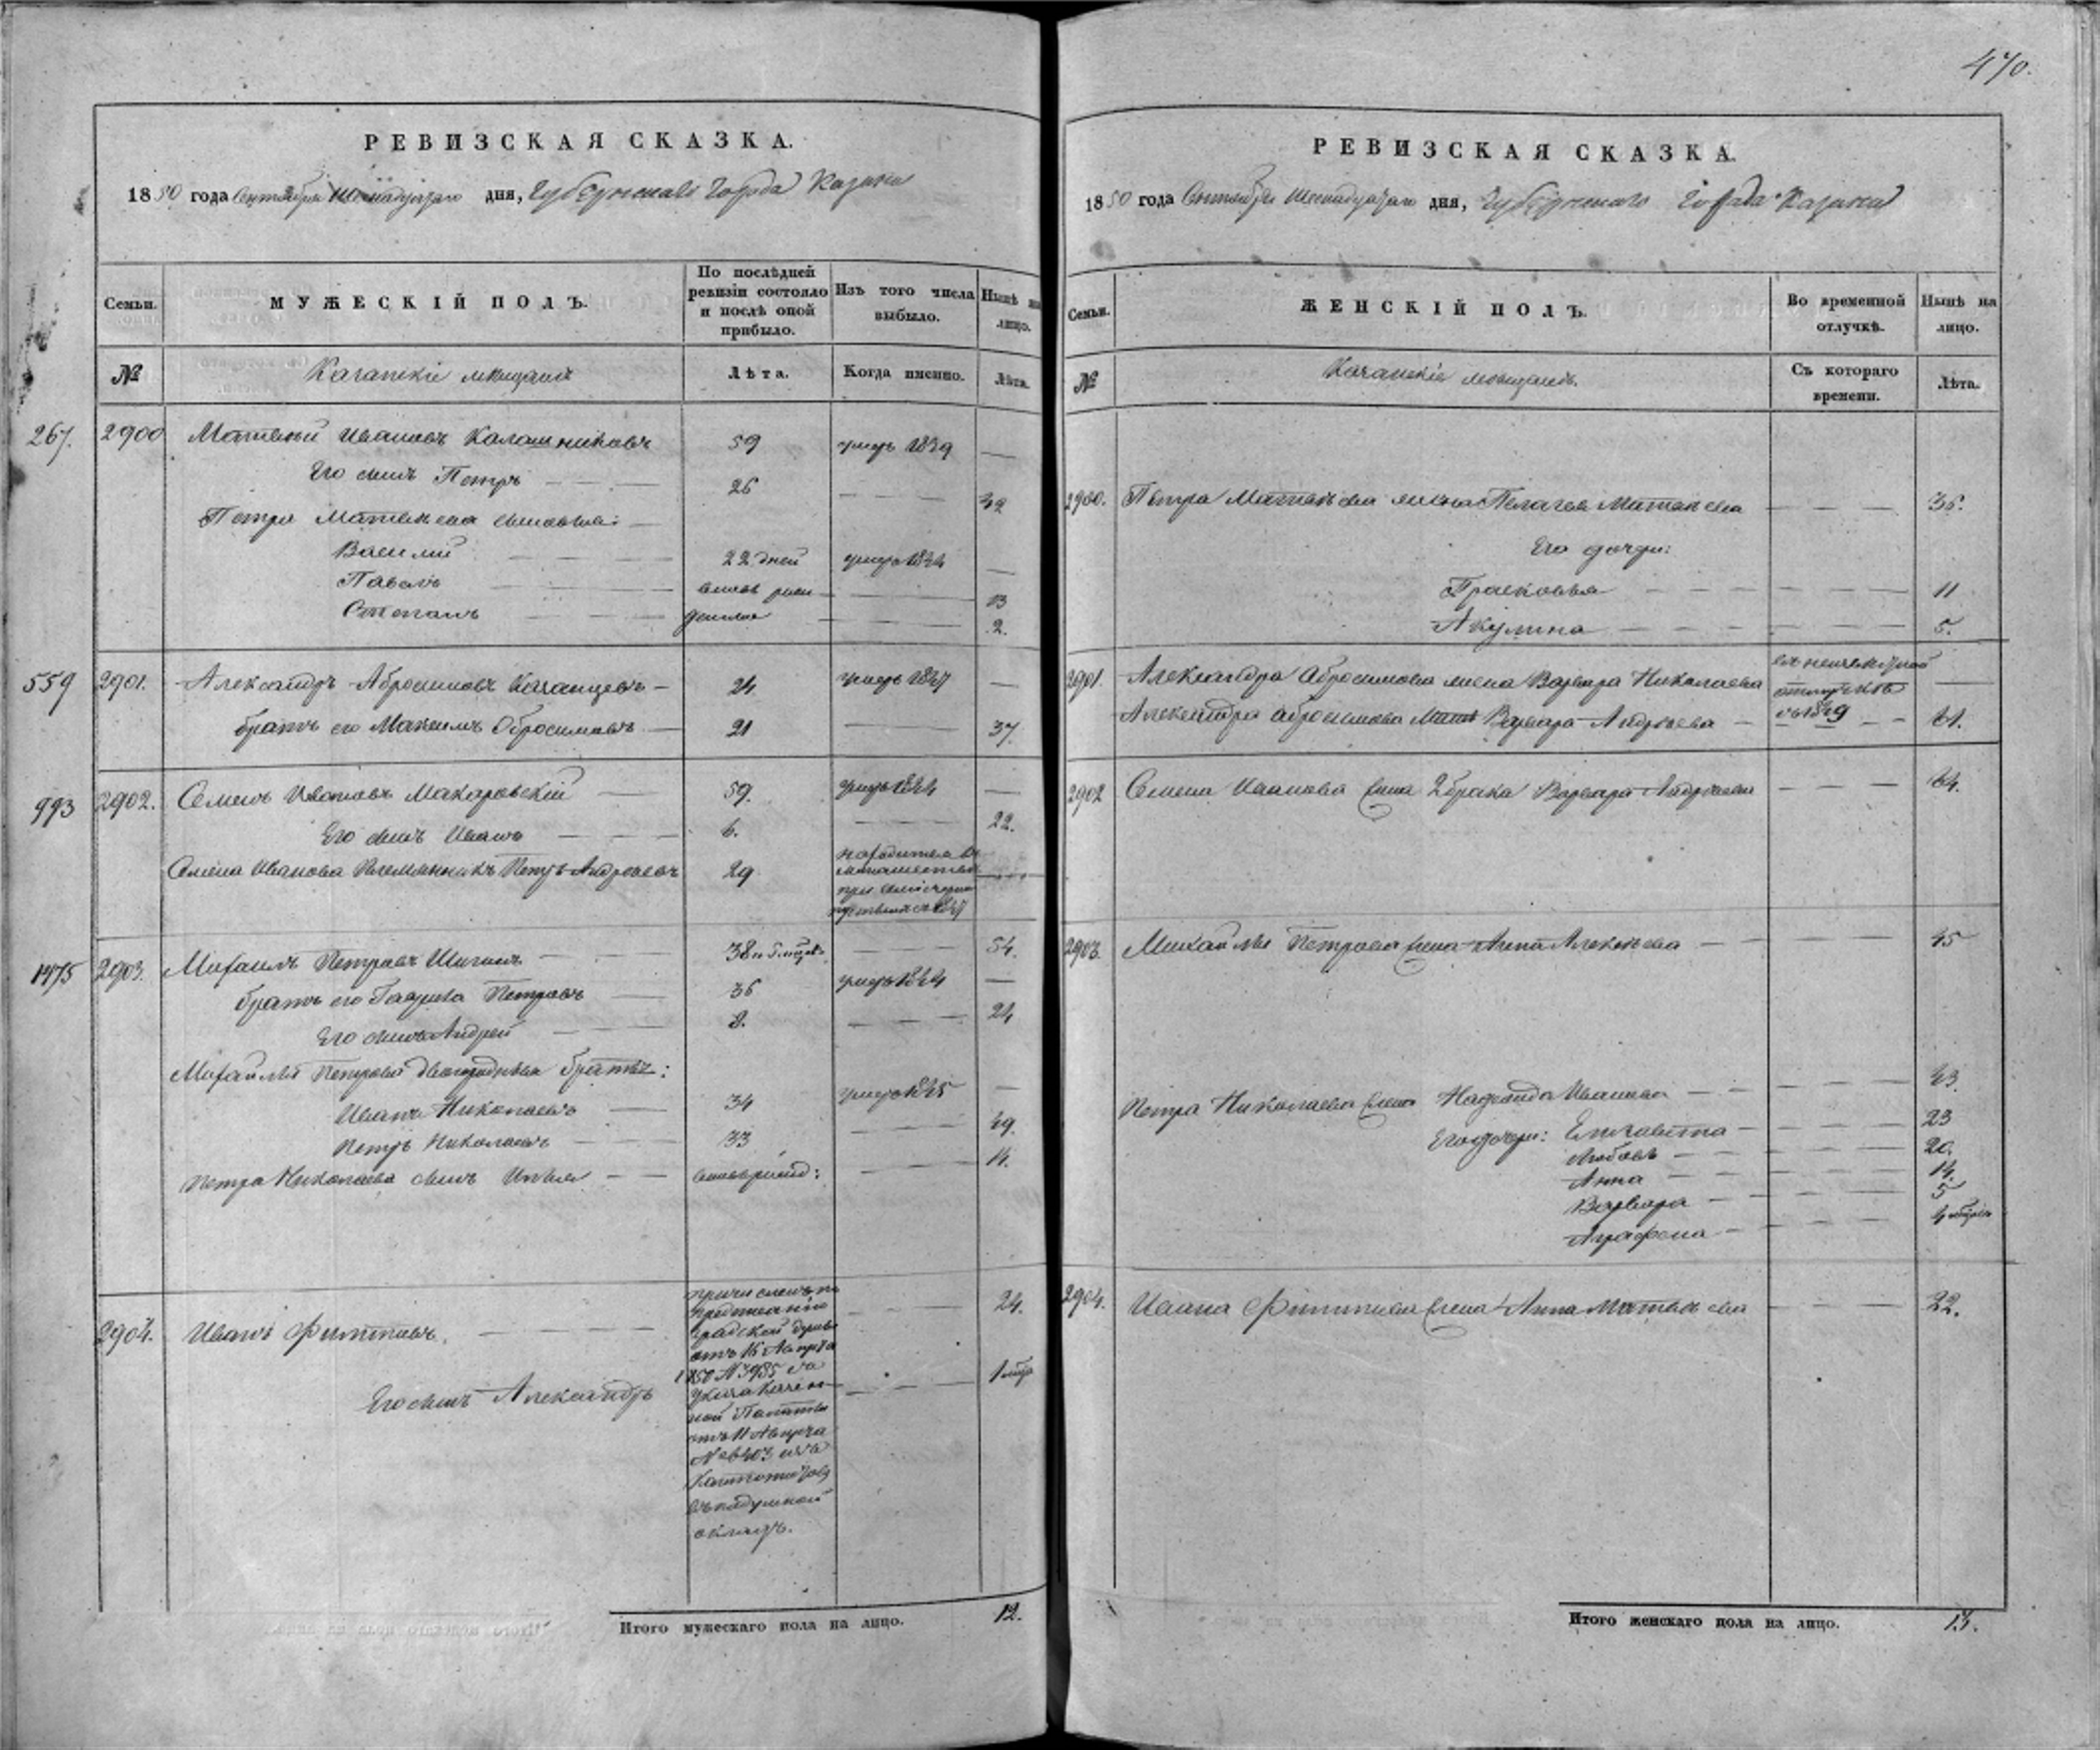 470.
РЕВИЗСКАЯ СКАЗКА.
1850 года Сентября Шестнадцатаго дня, Губернскаго Города Казани
Семьи.
МУЖЕСКІЙ ПОЛЪ.
По послѣдней ревизіи состояло и послѣ оной прибыло.
Изъ того числа выбыло.
Нынѣ на лицо.
№
Казанскіе мѣщане
Лѣта.
Когда именно.
Лѣта.
267. 2900 Матвей Ивановъ Калашниковъ 59 умеръ 1839 —
Его сынъ Петръ 26 — 42
Петра Матвѣева сыновья:
Василій 22 дней умеръ 1834 —
Павелъ вновь рож- 13
Степанъ денные 2.
559 2901. Александръ Абросимовъ Казанцевъ 24 умеръ 1847 —
братъ его Максимъ Обросимовъ 21 — 37.
993 2902. Семенъ Ивановъ Макаровскій 59. умеръ 1844 —
Его сынъ Иванъ 6. — 22.
Семена Иванова Племянникъ Петръ Андреевъ 29 находится въ монашестве при пустыне съ 1847 —
1475 2903. Михаилъ Петровъ Шигинъ 38 и 5 мѣсяц. — 54.
братъ его Гаврила Петровъ 36 умеръ 1844 —
Его сынъ Андрей 8. — 24
Михайлы Петрова двоюродныя братья:
Иванъ Николаевъ 34 умеръ 1845 —
Петръ Николаевъ 33 — 49.
Петра Николаева сынъ Илья вновь рожд: — 14.
2904. Иванъ Филиповъ. причисленъ по предписанію градской думы отъ 15 Августа 1850 № 3985 Казенной Палаты отъ 11 Августа изъ Кантонистовъ въ подушной окладъ. — 24.
Его сынъ Александръ — 1 мѣся
Итого мужескаго пола на лицо. 12.
РЕВИЗСКАЯ СКАЗКА.
1850 года Сентября Шестнадцатаго дня, Губернскаго Города Казани
Семьи.
ЖЕНСКІЙ ПОЛЪ.
Во временной отлучкѣ.
Нынѣ на лицо.
№
Казанскіе мѣщане.
Съ котораго времени.
Лѣта.
2900. Петра Матвѣева жена Пелагея Матвѣева — 36.
Его дочери:
Прасковья — 11
Акулина — 5.
2901. Александра Абросимова жена Варвара Николаева отлучкѣ съ 1849 —
Александра Абросимова Мать Варвара Андреева — 61.
2902 Семена Иванова жена 2 брака Варвара Андреева — 64.
2903. Михайлы Петрова жена Анна Алексѣева — 45
Петра Николаева жена Надежда Иванова — 43.
Его дочери: Елизавета — 23
Любовь — 20.
Анна — 14.
Варвара — 5
Аграфена — 4
2904. Ивана Филипова жена Анна Матвѣева — 22.
Итого женскаго пола на лицо. 13.